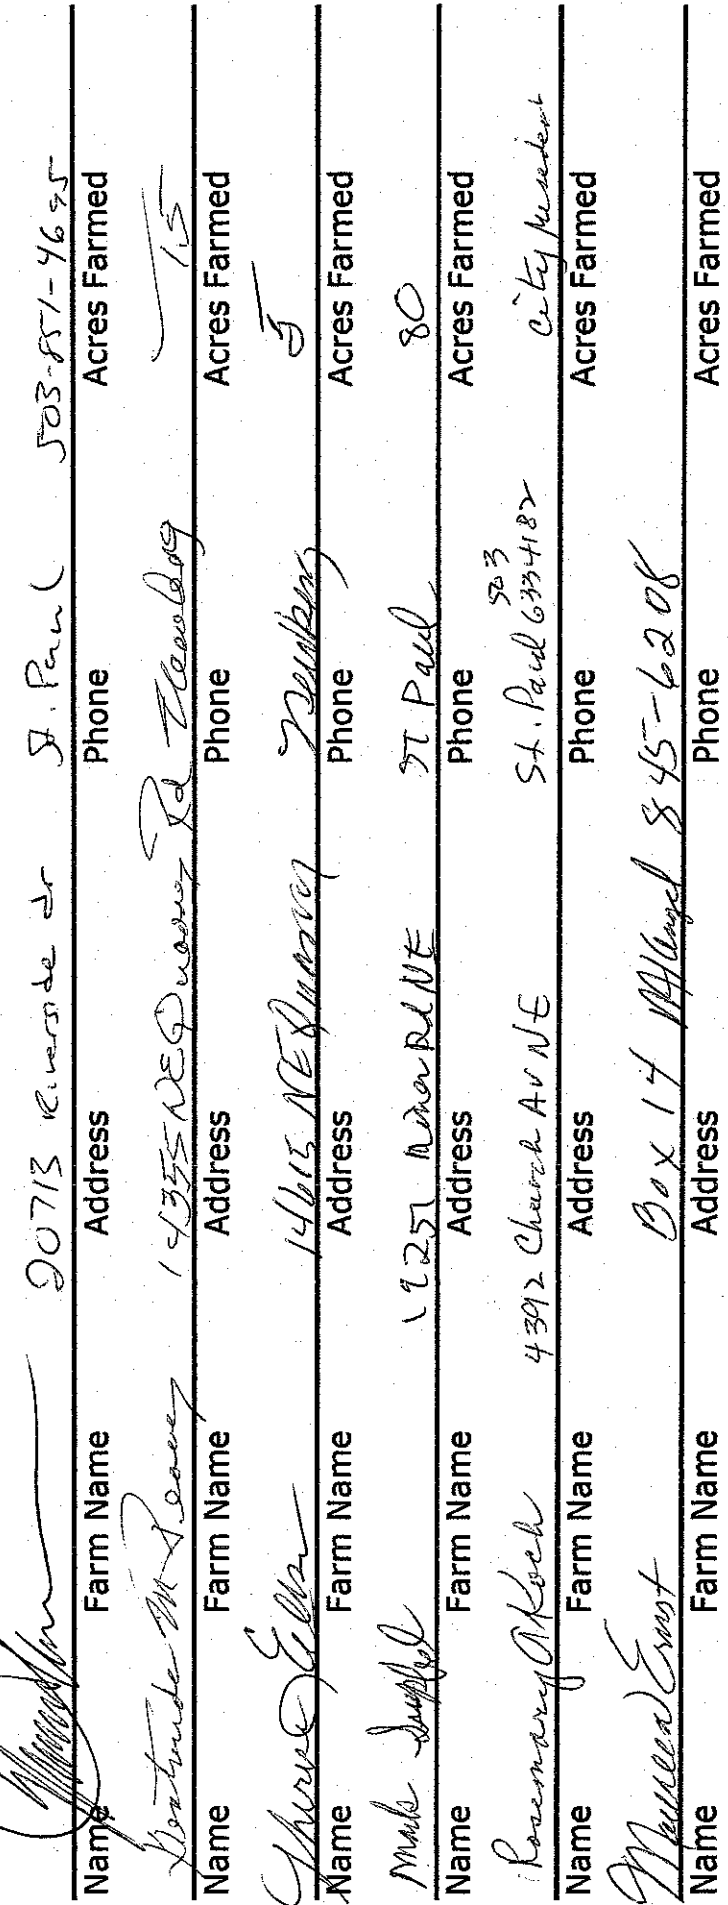 20713 Riverside dr St. Paul 503-851-4695
Name Farm Name Address Phone Acres Farmed
Gertrude M 14355 NE Quarry Rd Newberg 15
Name Farm Name Address Phone Acres Farmed
14615 NE Quarry Newberg 5
Name Farm Name Address Phone Acres Farmed
Mark 19251 Rd NE St Paul 80
Name Farm Name Address Phone Acres Farmed
Rosemary A Koch 4392 Church Av NE St. Paul 503 6334182 city resident
Name Farm Name Address Phone Acres Farmed
Maureen Ernst Box 14 Mt Angel 845-6208
Name Farm Name Address Phone Acres Farmed